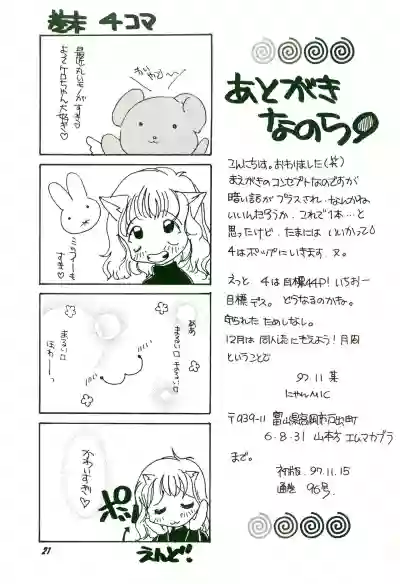 巻末 4コマ
最近丸いモノがすきで
よってケロちゃん大好き♡
ミッフィーも
すき♡
ああ
まるい口
まるい口
ほわーっ
かわいすぎ♡
ポッ
えんど!
21
あとがき
なのら
こんにちは。おわりました(笑)
まえがきのコンセプトなのですが
暗い話がプラスされ、なんかね
いいんだろうか、これで1本…と
思ったけど、たまにはいいかって♡
4はポップにいきます。又。
えっと 4は目標44P! いちおー
目標デス。どうなるのかな。
守られたためしなし。
12月は同人誌にもえよう!月間
ということで
97.11 某
にゃんMIC
〒939-11 富山県高岡市戸出町
6-8-31 山本方 エムマカブラ
まで。
初版. 97.11.15
通巻 96号.